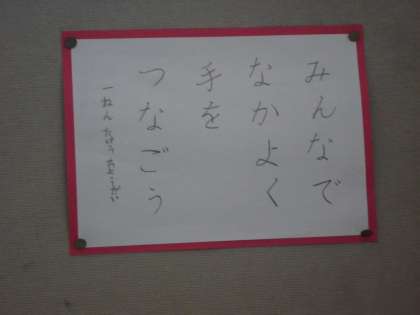 みんなで
なかよく
手を
つなごう
一ねん